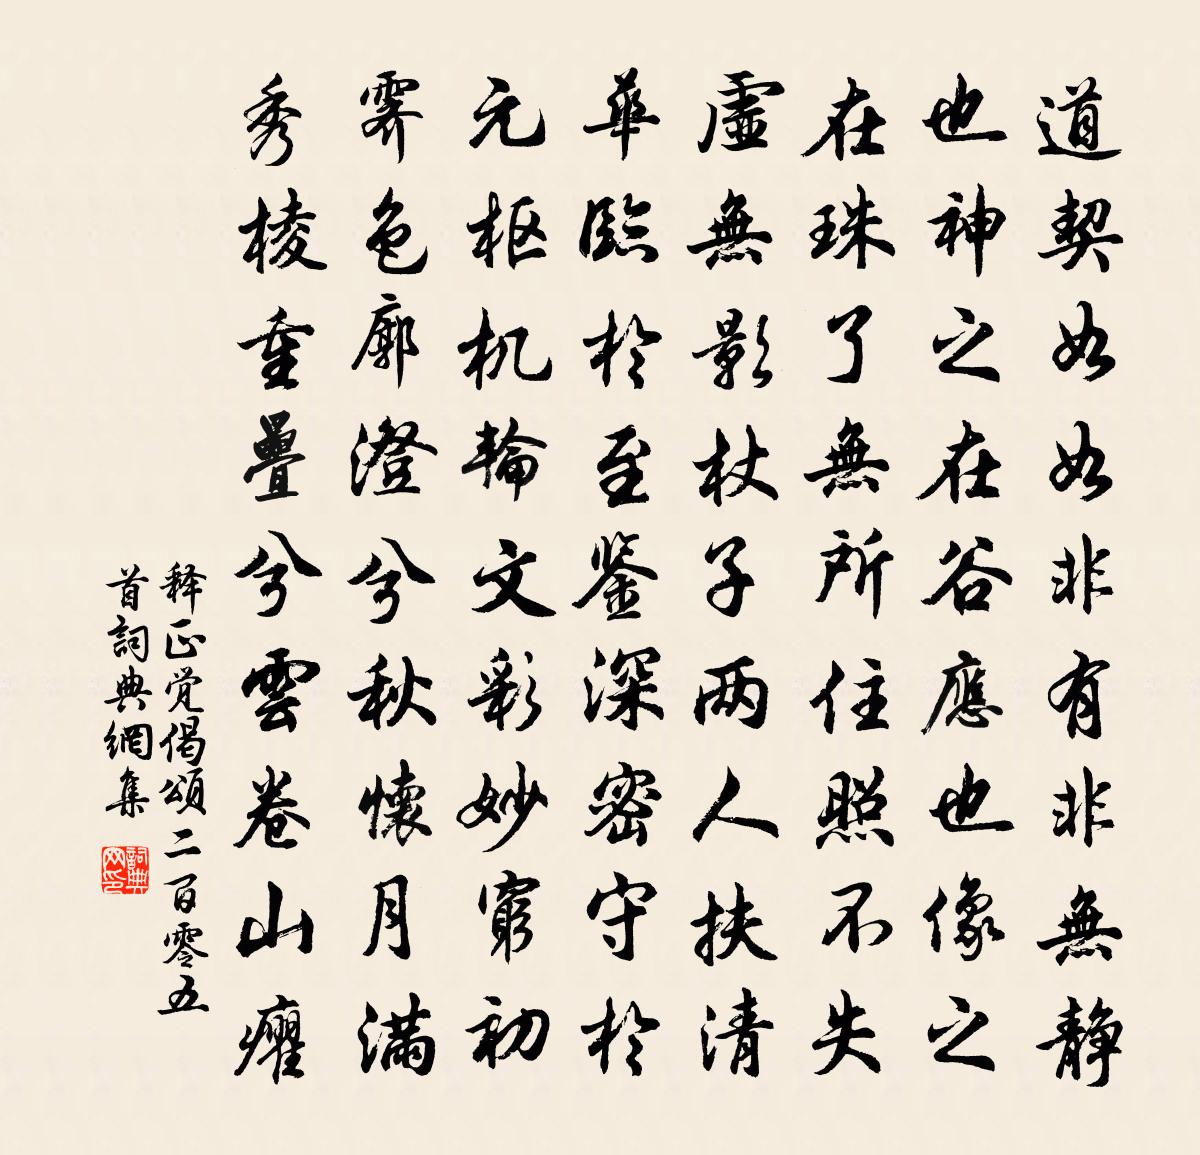 道契如如非有非無静
也神之在谷應也像之
在珠了無所住照不失
虛無影杖子两人扶清
華臨於至鉴深密守於
元枢机輪文彩妙窮初
霁色廓澄兮秋懷月满
秀棱重疊兮雲卷山癯
释正觉偈頌二百零五
首詞典網集
詞典网印